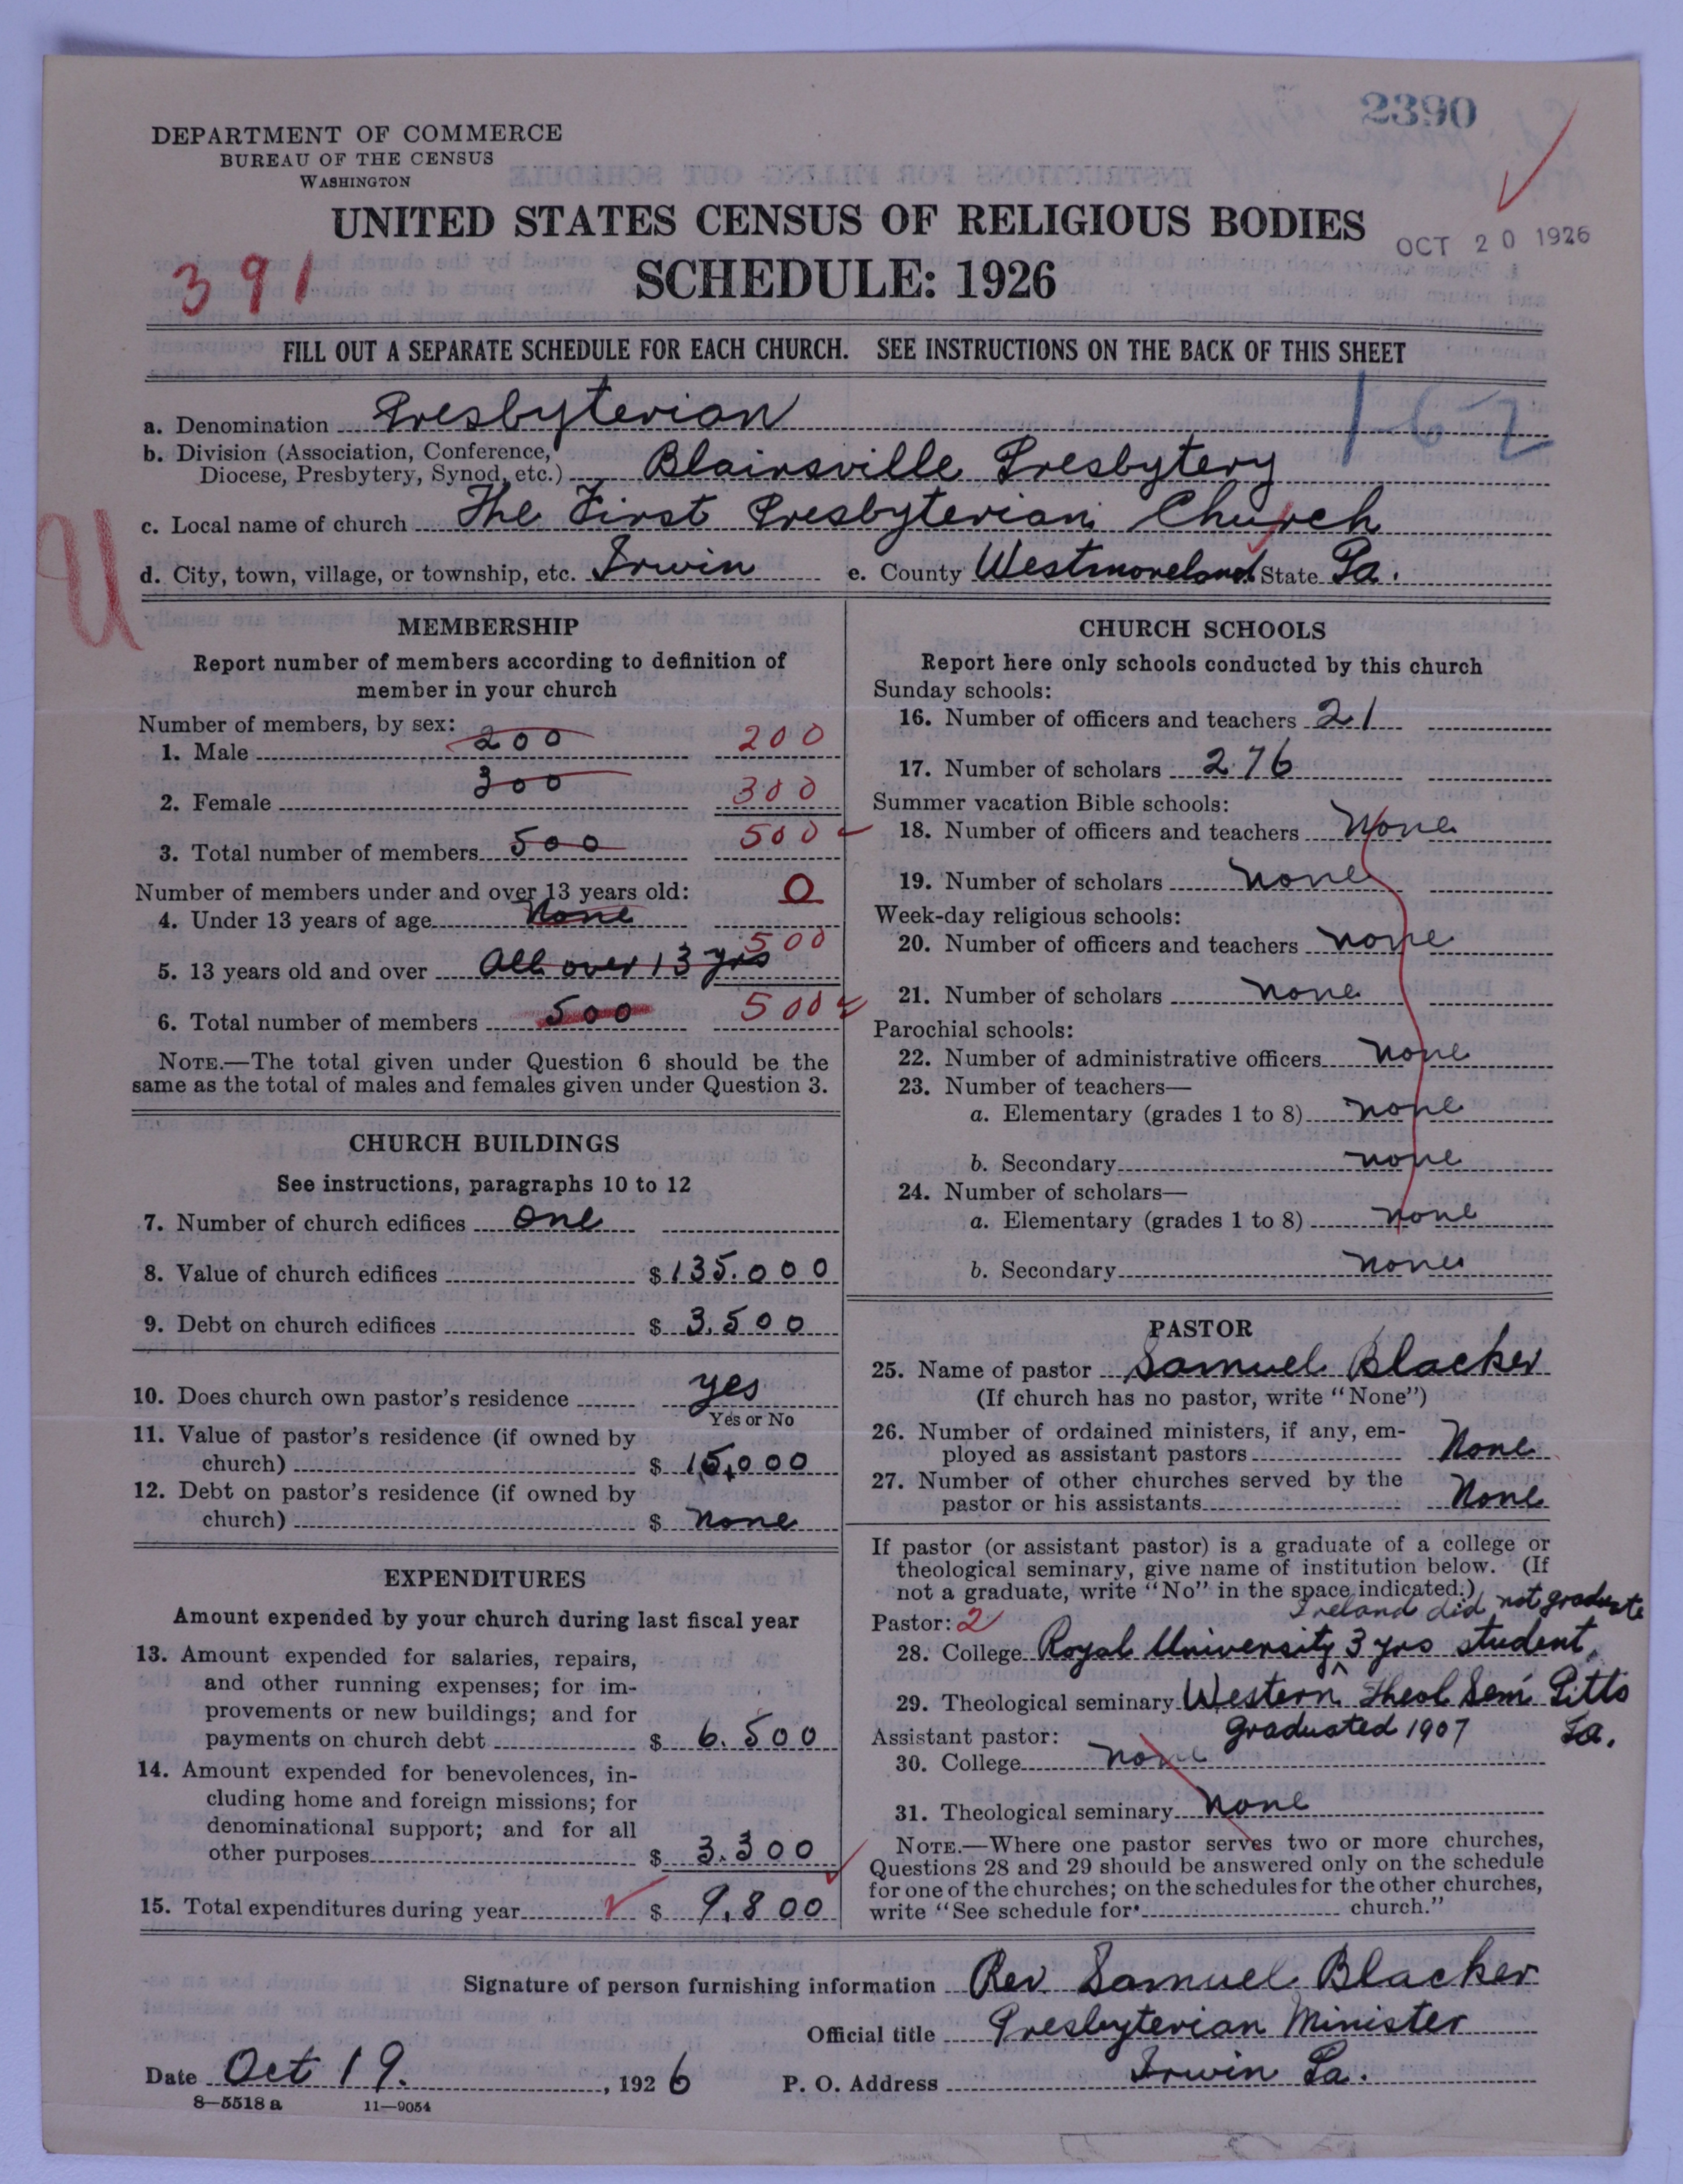 2390
DEPARTMENT OF COMMERCE
BUREAU OF THE CENSUS
WASHINGTON
UNITED STATES CENSUS OF RELIGIOUS BODIES
OCT 20 1926
391
SCHEDULE: 1926
FILL OUT A SEPARATE SCHEDULE FOR EACH CHURCH. SEE INSTRUCTIONS ON THE BACK OF THIS SHEET
1-62
a. Denomination Presbyterian
b. Division (Association, Conference,
Diocese, Presbytery, Synod, etc.) Blairsville Presbytery
c. Local name of church The First Presbyterian Church
U
d. City, town, village, or township, etc. Irwin e. County Westmoreland State Pa.
MEMBERSHIP
Report number of members according to definition of
member in your church
Number of members, by sex:
1. Male 200 200
2. Female 300 300
3. Total number of members 500 500
Number of members under and over 13 years old:
4. Under 13 years of age None 0
5. 13 years old and over All over 13 yrs 500
6. Total number of members 500 500
NOTE.—The total given under Question 6 should be the
same as the total of males and females given under Question 3.
CHURCH BUILDINGS
See instructions, paragraphs 10 to 12
7. Number of church edifices One
8. Value of church edifices $ 135.000
9. Debt on church edifices $ 3,500
10. Does church own pastor's residence yes
Yes or No
11. Value of pastor's residence (if owned by
church) $ 15,000
12. Debt on pastor's residence (if owned by
church) $ none
EXPENDITURES
Amount expended by your church during last fiscal year
13. Amount expended for salaries, repairs,
and other running expenses; for im-
provements or new buildings; and for
payments on church debt $ 6.500
14. Amount expended for benevolences, in-
cluding home and foreign missions; for
denominational support; and for all
other purposes $ 3.300
15. Total expenditures during year $ 9,800
CHURCH SCHOOLS
Report here only schools conducted by this church
Sunday schools:
16. Number of officers and teachers 21
17. Number of scholars 276
Summer vacation Bible schools:
18. Number of officers and teachers None
19. Number of scholars None
Week-day religious schools:
20. Number of officers and teachers none
21. Number of scholars none
Parochial schools:
22. Number of administrative officers none
23. Number of teachers—
a. Elementary (grades 1 to 8) none
b. Secondary none
24. Number of scholars—
a. Elementary (grades 1 to 8) none
b. Secondary none
PASTOR
25. Name of pastor Samuel Blacker
(If church has no pastor, write "None")
26. Number of ordained ministers, if any, em-
ployed as assistant pastors None
27. Number of other churches served by the
pastor or his assistants None
If pastor (or assistant pastor) is a graduate of a college or
theological seminary, give name of institution below. (If
not a graduate, write "No" in the space indicated.)
Ireland did not graduate
Pastor: 2
28. College Royal University 3 yrs student,
29. Theological seminary Western Theol Sem Pitts
Pa.
graduated 1907
Assistant pastor:
30. College none
31. Theological seminary None
NOTE.—Where one pastor serves two or more churches,
Questions 28 and 29 should be answered only on the schedule
for one of the churches; on the schedules for the other churches,
write "See schedule for church."
Signature of person furnishing information Rev. Samuel Blacker
Official title Presbyterian Minister
Date Oct 19. , 1926 P. O. Address Irwin Pa.
8—5518 a 11—9054